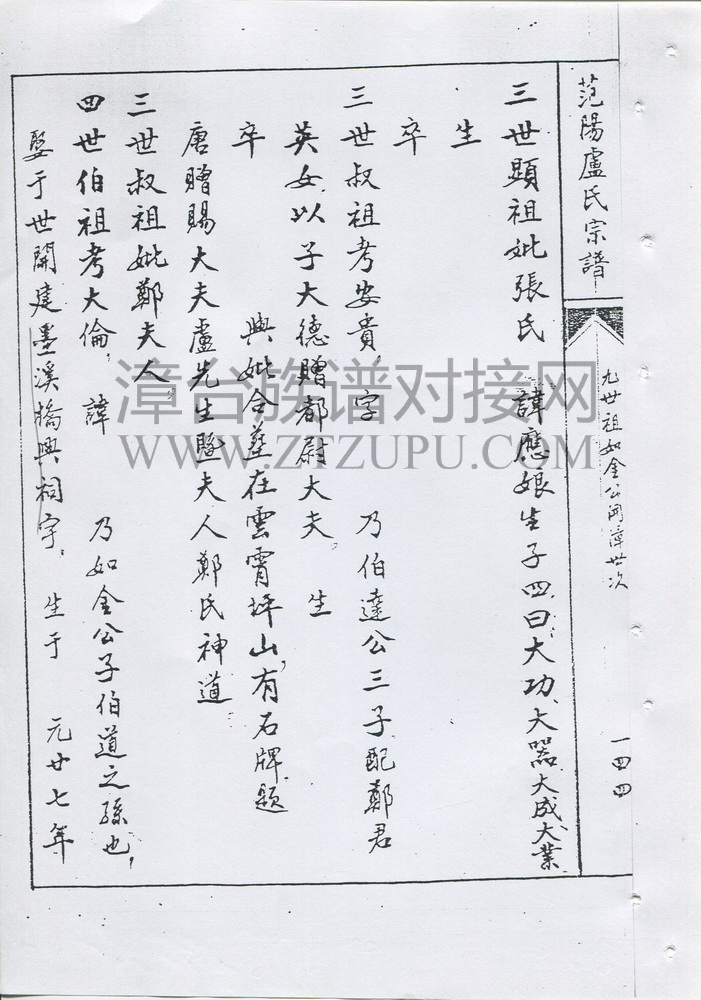 范陽盧氏宗譜
九世祖如金公開漳世次
一四四
三世顯祖妣張氏 諱應娘生子四曰:大功、大器、大成、大業
生
卒
三世叔祖考安貴, 字 乃伯達公三子配鄭君
英女以子大德贈都尉大夫。 生
卒 與妣合塟在雲霄坪山,有石牌題
唐贈賜大夫盧先生暨夫人鄭氏神道
三世叔祖妣鄭夫人
四世伯祖考大倫, 諱 乃如金公子伯道之孫也,
于世開建墨溪橋與祠宇。 生于 元廿七年
漳台族谱对接网
WWW.ZTZUPU.COM